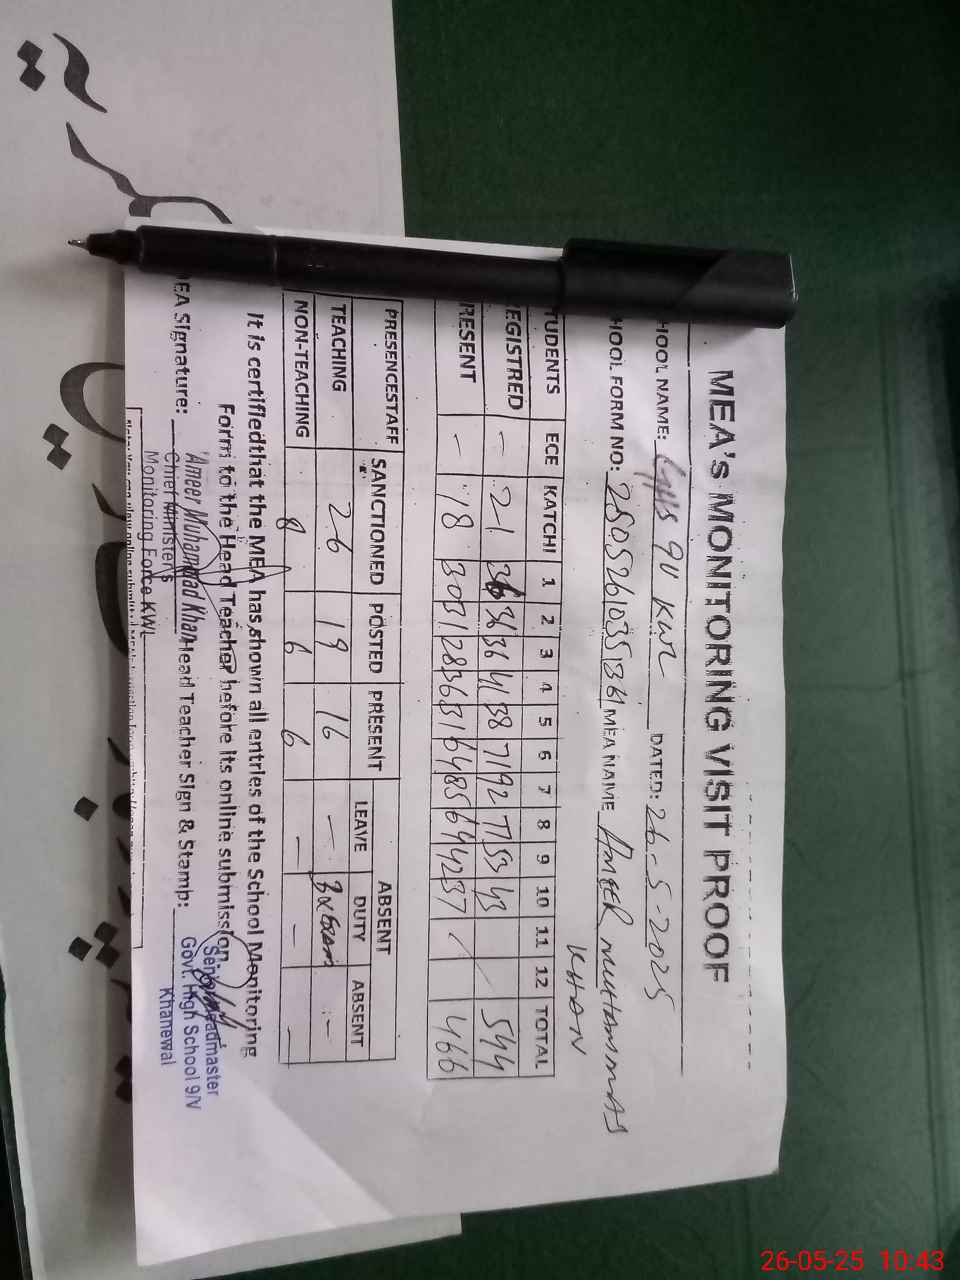 MEA's MONITORING VISIT PROOF
HOOL NAME: GHS 9V KWL DATED: 26-5-2025
HOOL FORM NO: MEA NAME AMEER MUHAMMAD
KHAN
TUDENTS ECE KATCHI 1 2 3 4 5 6 7 8 9 10 11 12 TOTAL
EGISTRED – 21 36 36 36 41 38 71 92 77 53 43 544
RESENT – 18 30 31 28 36 31 64 85 64 42 37 466
PRESENCESTAFF SANCTIONED POSTED PRESENT ABSENT
LEAVE DUTY ABSENT
TEACHING 26 19 16 – 3xExam –
NON-TEACHING 8 6 6 – – –
It is certifiedthat the MEA has shown all entries of the School Monitoring
Form to the Head Teacher before its online submission.
EA Signature: Head Teacher Sign & Stamp:
Ameer Muhammad Khan
Chief Minister's
Monitoring Force KWL
Senior Headmaster
Govt. High School 9/V
Khanewal
26-05-25 10:43